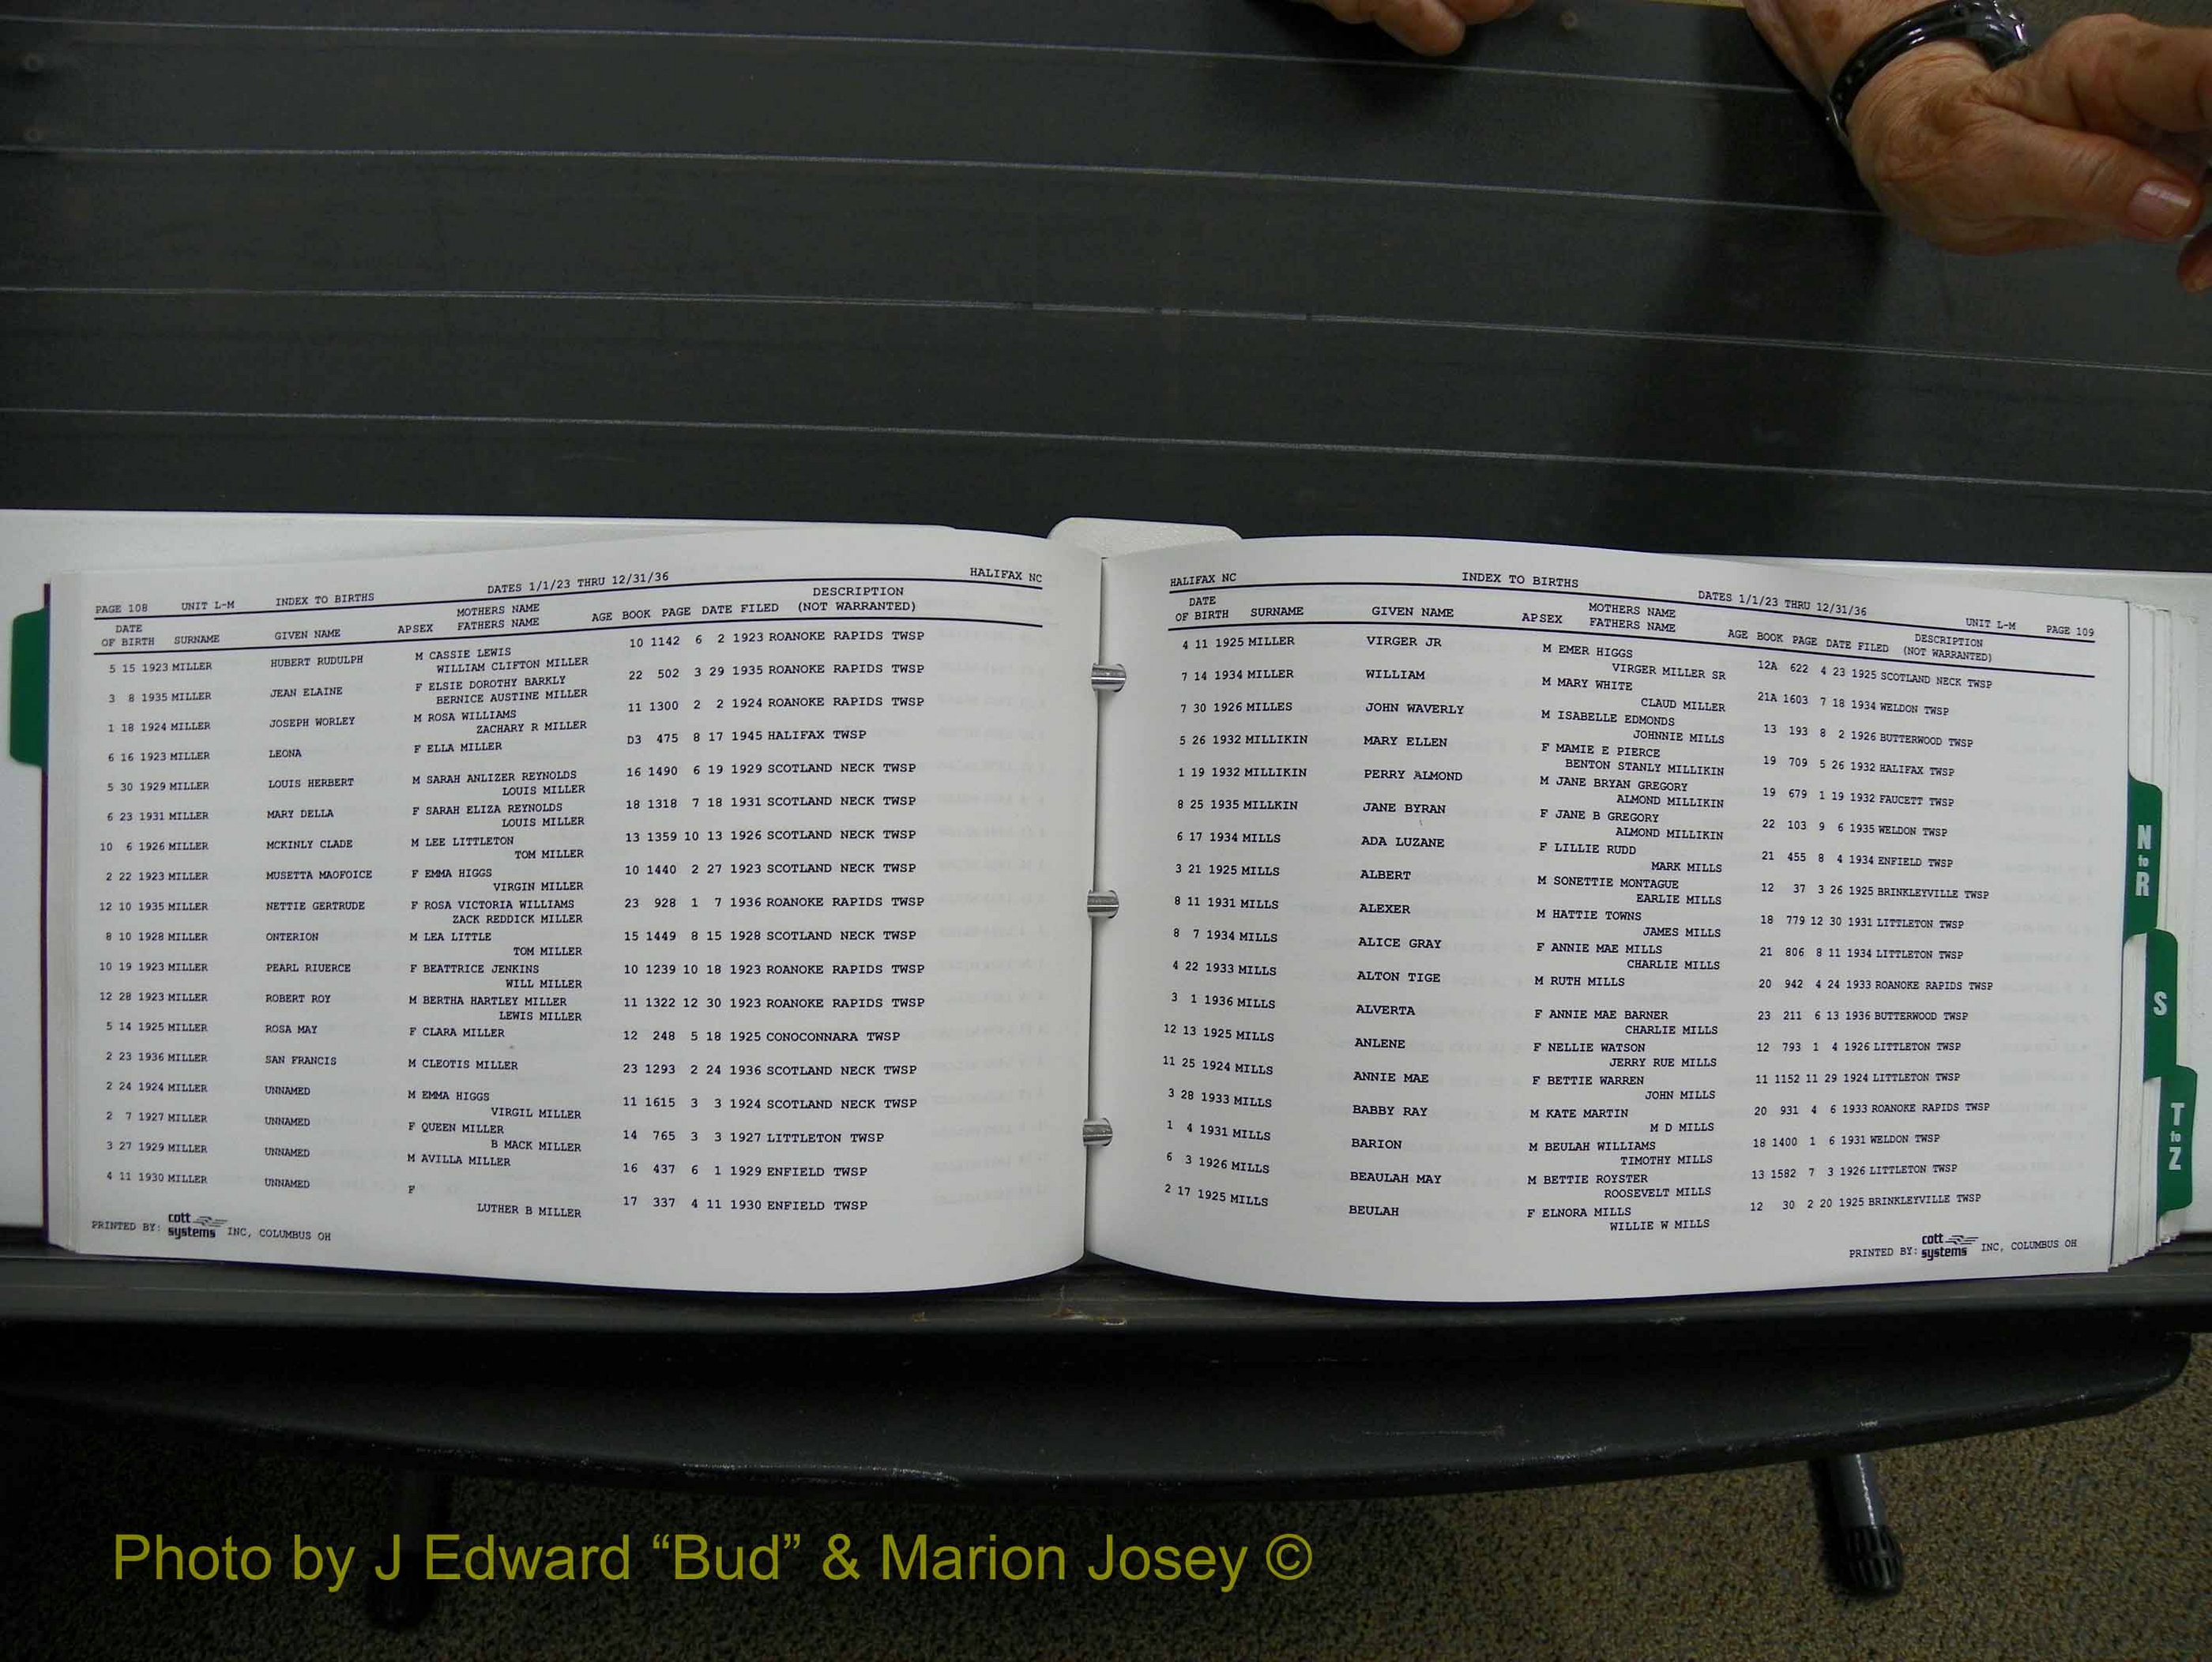 PAGE 108 UNIT L-M INDEX TO BIRTHS DATES 1/1/23 THRU 12/31/36 HALIFAX NC
DATE OF BIRTH SURNAME GIVEN NAME APSEX MOTHERS NAME FATHERS NAME AGE BOOK PAGE DATE FILED DESCRIPTION (NOT WARRANTED)
5 15 1923 MILLER HUBERT RUDULPH M CASSIE LEWIS 10 1142 6 2 1923 ROANOKE RAPIDS TWSP
WILLIAM CLIFTON MILLER
3 8 1935 MILLER JEAN ELAINE F ELSIE DOROTHY BARKLY 22 502 3 29 1935 ROANOKE RAPIDS TWSP
BERNICE AUSTINE MILLER
1 18 1924 MILLER JOSEPH WORLEY M ROSA WILLIAMS 11 1300 2 2 1924 ROANOKE RAPIDS TWSP
ZACHARY R MILLER
6 16 1923 MILLER LEONA F ELLA MILLER D3 475 8 17 1945 HALIFAX TWSP
5 30 1929 MILLER LOUIS HERBERT M SARAH ANLIZER REYNOLDS 16 1490 6 19 1929 SCOTLAND NECK TWSP
LOUIS MILLER
6 23 1931 MILLER MARY DELLA F SARAH ELIZA REYNOLDS 18 1318 7 18 1931 SCOTLAND NECK TWSP
LOUIS MILLER
10 6 1926 MILLER MCKINLY CLADE M LEE LITTLETON 13 1359 10 13 1926 SCOTLAND NECK TWSP
TOM MILLER
2 22 1923 MILLER MUSETTA MAOFOICE F EMMA HIGGS 10 1440 2 27 1923 SCOTLAND NECK TWSP
VIRGIN MILLER
12 10 1935 MILLER NETTIE GERTRUDE F ROSA VICTORIA WILLIAMS 23 928 1 7 1936 ROANOKE RAPIDS TWSP
ZACK REDDICK MILLER
8 10 1928 MILLER ONTERION M LEA LITTLE 15 1449 8 15 1928 SCOTLAND NECK TWSP
TOM MILLER
10 19 1923 MILLER PEARL RIUERCE F BEATTRICE JENKINS 10 1239 10 18 1923 ROANOKE RAPIDS TWSP
WILL MILLER
12 28 1923 MILLER ROBERT ROY M BERTHA HARTLEY MILLER 11 1322 12 30 1923 ROANOKE RAPIDS TWSP
LEWIS MILLER
5 14 1925 MILLER ROSA MAY F CLARA MILLER 12 248 5 18 1925 CONOCONNARA TWSP
2 23 1936 MILLER SAN FRANCIS M CLEOTIS MILLER 23 1293 2 24 1936 SCOTLAND NECK TWSP
2 24 1924 MILLER UNNAMED M EMMA HIGGS 11 1615 3 3 1924 SCOTLAND NECK TWSP
VIRGIL MILLER
2 7 1927 MILLER UNNAMED F QUEEN MILLER 14 765 3 3 1927 LITTLETON TWSP
B MACK MILLER
3 27 1929 MILLER UNNAMED M AVILLA MILLER 16 437 6 1 1929 ENFIELD TWSP
4 11 1930 MILLER UNNAMED F 17 337 4 11 1930 ENFIELD TWSP
LUTHER B MILLER
PRINTED BY: cott systems INC, COLUMBUS OH
HALIFAX NC INDEX TO BIRTHS DATES 1/1/23 THRU 12/31/36 UNIT L-M PAGE 109
DATE OF BIRTH SURNAME GIVEN NAME APSEX MOTHERS NAME FATHERS NAME AGE BOOK PAGE DATE FILED DESCRIPTION (NOT WARRANTED)
4 11 1925 MILLER VIRGER JR M EMER HIGGS 12A 622 4 23 1925 SCOTLAND NECK TWSP
VIRGER MILLER SR
7 14 1934 MILLER WILLIAM M MARY WHITE 21A 1603 7 18 1934 WELDON TWSP
CLAUD MILLER
7 30 1926 MILLES JOHN WAVERLY M ISABELLE EDMONDS 13 193 8 2 1926 BUTTERWOOD TWSP
JOHNNIE MILLS
5 26 1932 MILLIKIN MARY ELLEN F MAMIE E PIERCE 19 709 5 26 1932 HALIFAX TWSP
BENTON STANLY MILLIKIN
1 19 1932 MILLIKIN PERRY ALMOND M JANE BRYAN GREGORY 19 679 1 19 1932 FAUCETT TWSP
ALMOND MILLIKIN
8 25 1935 MILLKIN JANE BYRAN F JANE B GREGORY 22 103 9 6 1935 WELDON TWSP
ALMOND MILLIKIN
6 17 1934 MILLS ADA LUZANE F LILLIE RUDD 21 455 8 4 1934 ENFIELD TWSP
MARK MILLS
3 21 1925 MILLS ALBERT M SONETTIE MONTAGUE 12 37 3 26 1925 BRINKLEYVILLE TWSP
EARLIE MILLS
8 11 1931 MILLS ALEXER M HATTIE TOWNS 18 779 12 30 1931 LITTLETON TWSP
JAMES MILLS
8 7 1934 MILLS ALICE GRAY F ANNIE MAE MILLS 21 806 8 11 1934 LITTLETON TWSP
CHARLIE MILLS
4 22 1933 MILLS ALTON TIGE M RUTH MILLS 20 942 4 24 1933 ROANOKE RAPIDS TWSP
3 1 1936 MILLS ALVERTA F ANNIE MAE BARNER 23 211 6 13 1936 BUTTERWOOD TWSP
CHARLIE MILLS
12 13 1925 MILLS ANLENE F NELLIE WATSON 12 793 1 4 1926 LITTLETON TWSP
JERRY RUE MILLS
11 25 1924 MILLS ANNIE MAE F BETTIE WARREN 11 1152 11 29 1924 LITTLETON TWSP
JOHN MILLS
3 28 1933 MILLS BABBY RAY M KATE MARTIN 20 931 4 6 1933 ROANOKE RAPIDS TWSP
M D MILLS
1 4 1931 MILLS BARION M BEULAH WILLIAMS 18 1400 1 6 1931 WELDON TWSP
TIMOTHY MILLS
6 3 1926 MILLS BEAULAH MAY M BETTIE ROYSTER 13 1582 7 3 1926 LITTLETON TWSP
ROOSEVELT MILLS
2 17 1925 MILLS BEULAH F ELNORA MILLS 12 30 2 20 1925 BRINKLEYVILLE TWSP
WILLIE W MILLS
PRINTED BY: cott systems INC, COLUMBUS OH
N to R
S
T to Z
Photo by J Edward “Bud” & Marion Josey ©